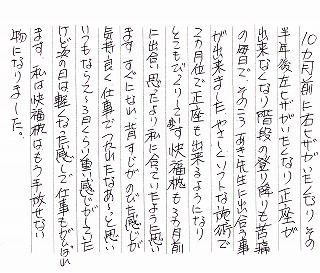 10カ月前に右ヒザがいたくなり その
半年後左ヒザがいたくなり正座が
出来なくなり階段の登り降りも苦痛
の毎日で、そのころあき先生に出会う事
が出来ました やさしくソフトな施術で
2カ月位で正座も出来るようになり
とてもびっくりして快福枕も3カ月前
に出会い思たより私に合ていたように思い
ます すぐになれ背すじがのびた感じで
気持良く仕事でつかれたなあ〜と思い
いつもなら2〜3日くらい重い感じがしていた
けど次の日は軽くなった感じで仕事もがんばれ
ます、私は快福枕はもう手放せない
物になりました。